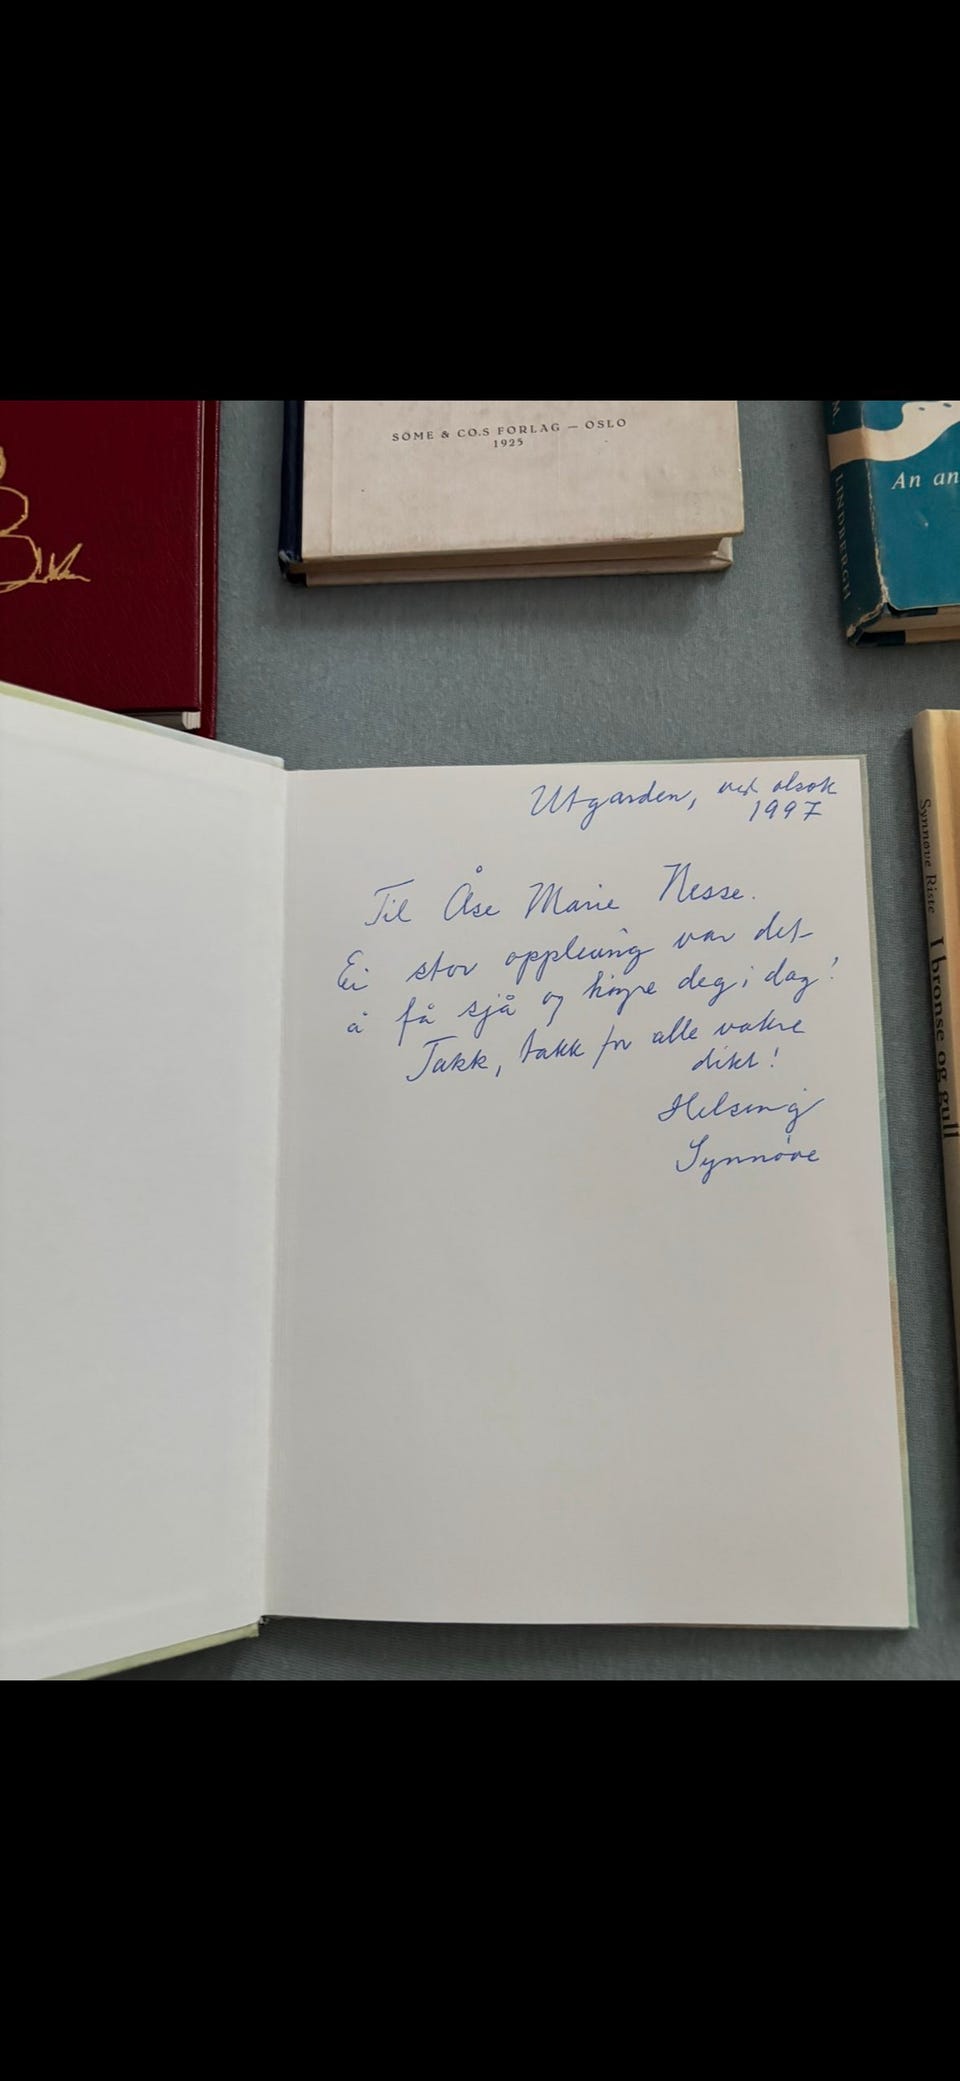 SOME & CO.S FORLAG — OSLO
1925
M.
LINDBERGH
An an
Utgarden, ved olsok
1997
Til Åse Marie Nesse.
Ei stor oppleving var det
å få sjå og høyre deg i dag!
Takk, takk for alle vakre
dikt!
Helsing
Synnøve
Synnøve Riste I bronse og gull